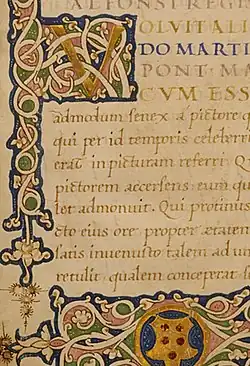 ALFONSI REGI
VOLVIT ALI
DO MARTI
PONT. MA
CVM ESS
admodum senex a pictore q
qui per id temporis celeberri
erat in picturam referri. Q
pictorem accersens: eum qu
let admonuit. Qui protinus
cto eius ore propter ætatem
satis inuenusto talem ad un
retulit, qualem conceperat f